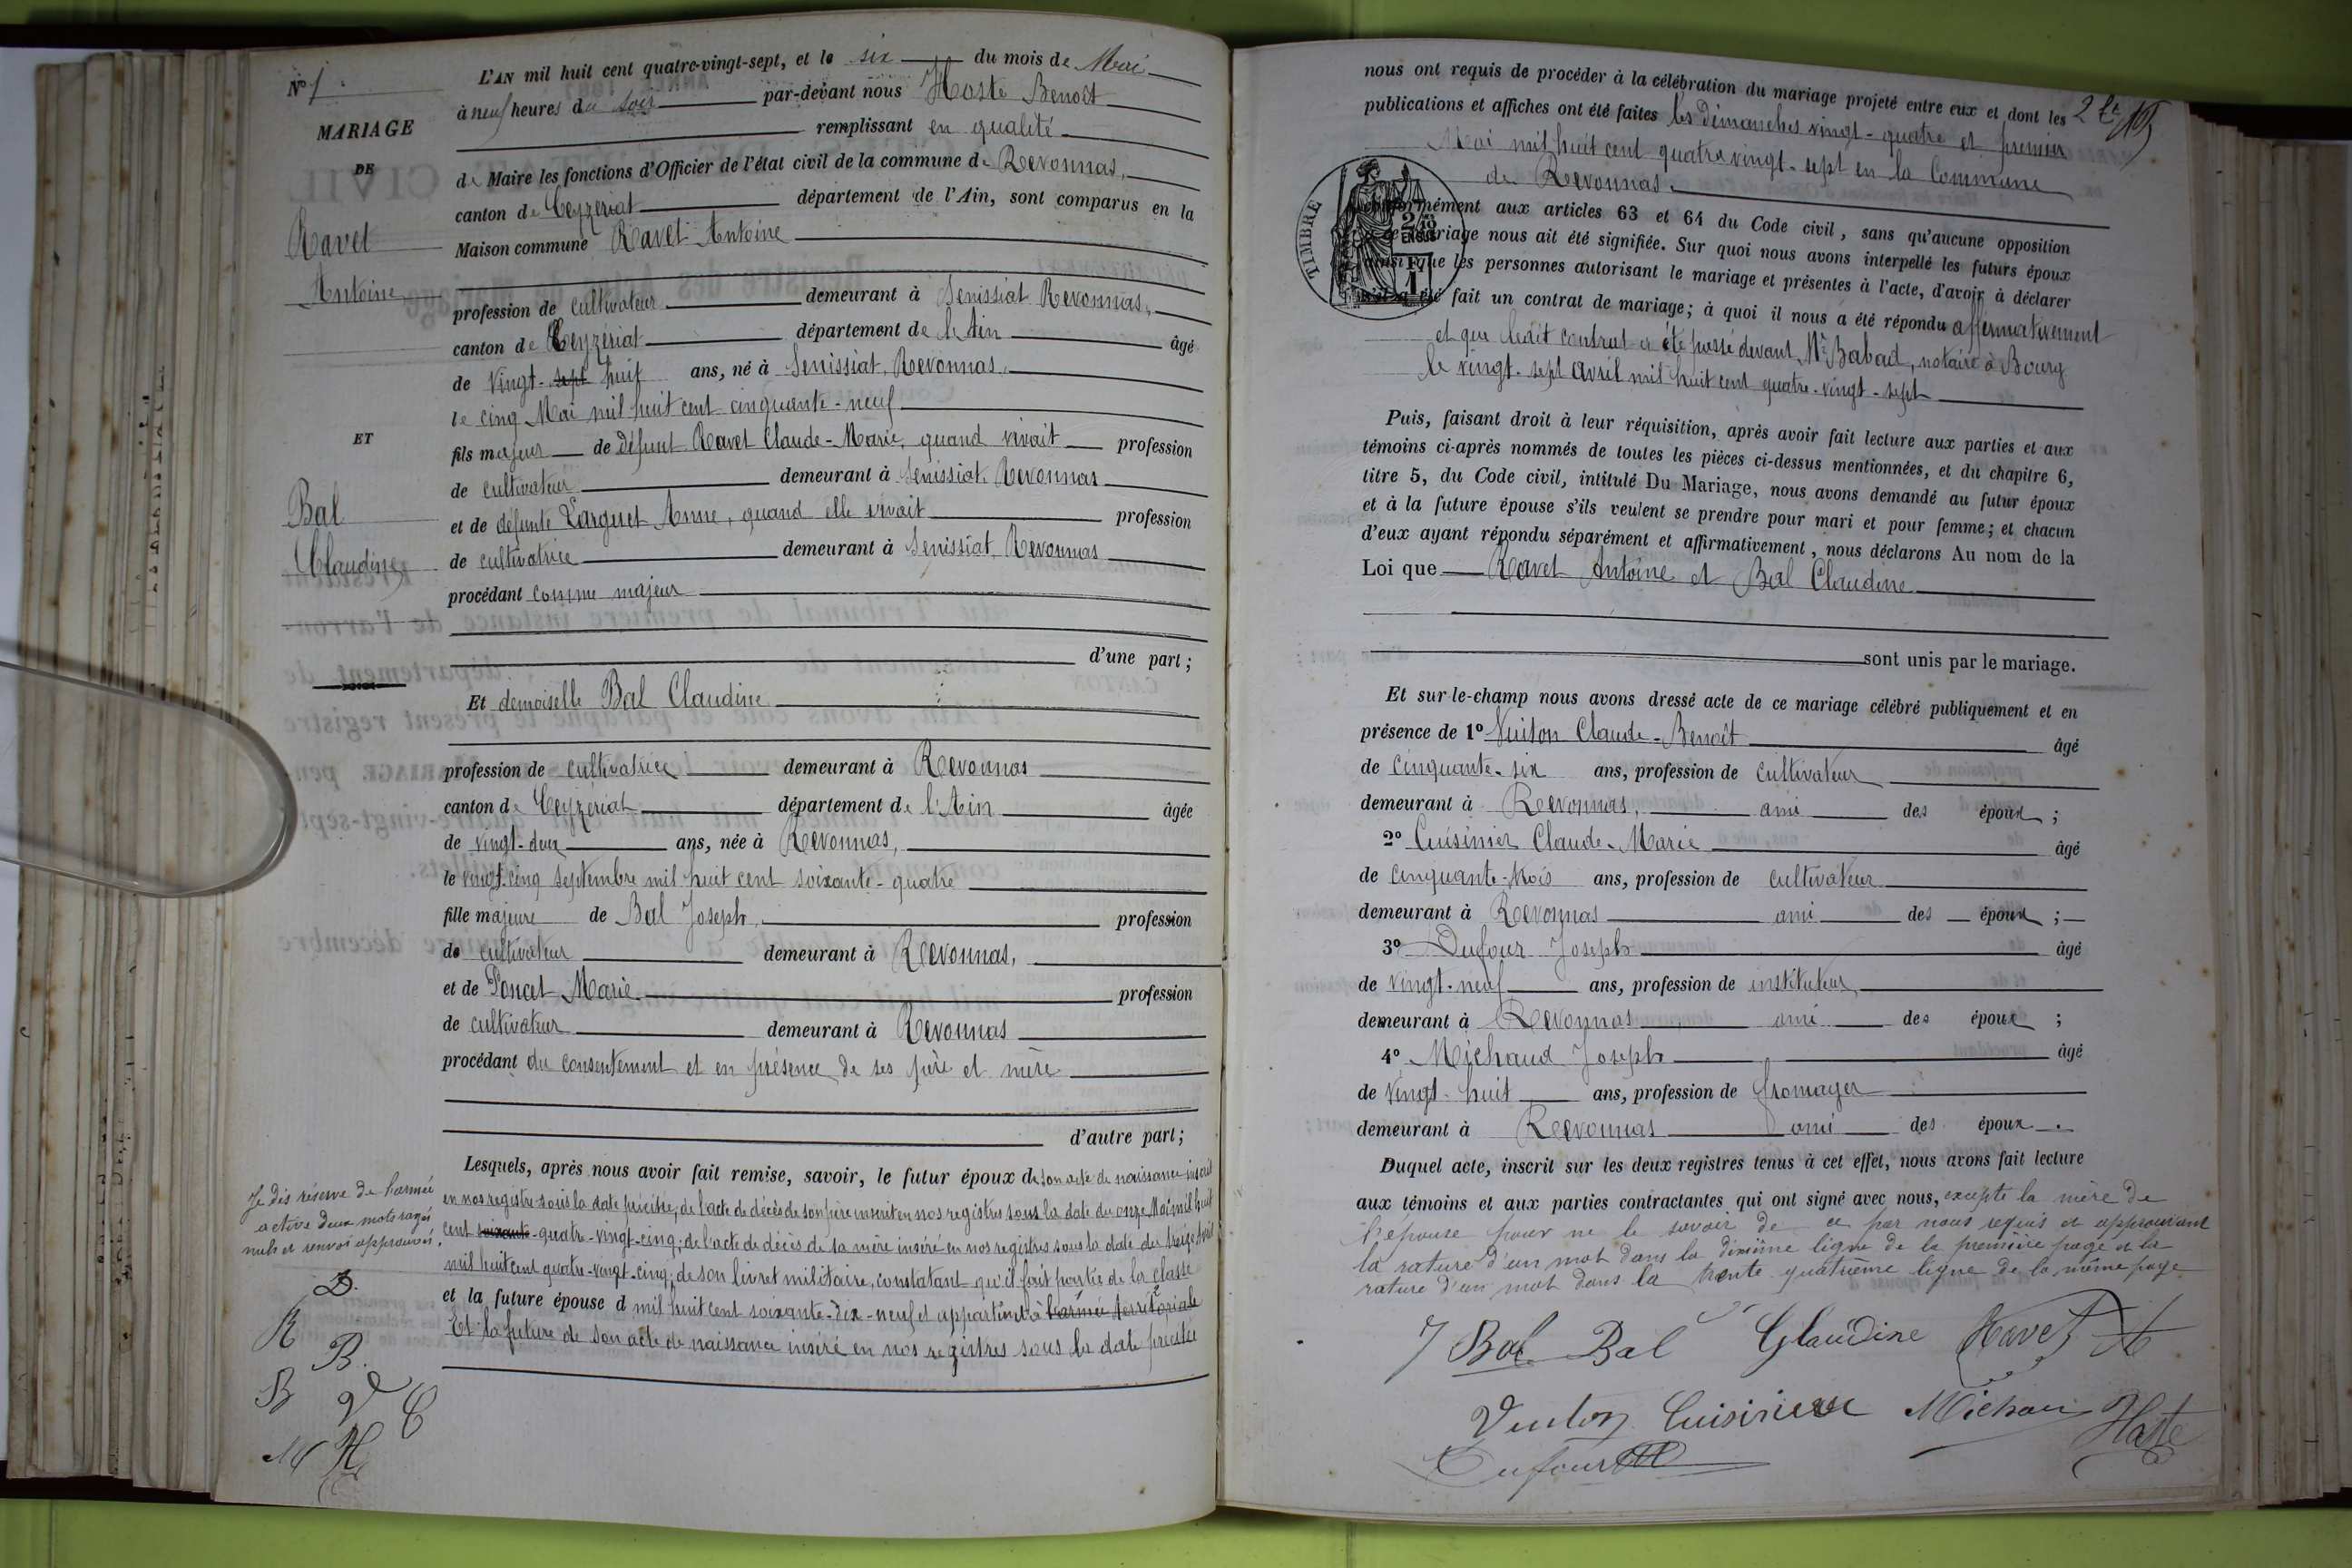 N° 1.
MARIAGE
DE
Ravet
Antoine
ET
Bal
Claudine
L'AN mil huit cent quatre-vingt-sept, et le six du mois de Mai
à neuf heures du soir par-devant nous Hoste Benoît
remplissant en qualité
de Maire les fonctions d'Officier de l'état civil de la commune de Revonnas,
canton de Ceyzériat département de l'Ain, sont comparus en la
Maison commune Ravet Antoine
profession de cultivateur demeurant à Senissiat Revonnas,
canton de Ceyzériat département de l'Ain âgé
de vingt-sept huit ans, né à Senissiat, Revonnas,
le cinq Mai mil huit cent cinquante-neuf
fils majeur de défunt Ravet Claude-Marie, quand vivait profession
de cultivateur demeurant à Senissiat Revonnas
et de défunte Larguet Anne, quand elle vivait profession
de cultivatrice demeurant à Senissiat Revonnas
procédant comme majeur
d'une part;
Et demoiselle Bal Claudine
profession de cultivatrice demeurant à Revonnas
canton de Ceyzériat département de l'Ain âgée
de vingt-deux ans, née à Revonnas,
le vingt-cinq septembre mil huit cent soixante-quatre
fille majeure de Bal Joseph, profession
de cultivateur demeurant à Revonnas,
et de Poncet Marie profession
de cultivateur demeurant à Revonnas
procédant du consentement et en présence de ses père et mère
d'autre part;
Lesquels, après nous avoir fait remise, savoir, le futur époux de son acte de naissance inscrit
en nos registre sous la date précitée, de l'acte de décès de son père inscrit en nos registres sous la date du onze Mai mil huit
cent soixante-quatre-vingt-cinq; de l'acte de décès de sa mère inséré en nos registres sous la date du treize Avril
mil huit cent quatre-vingt-cinq; de son livret militaire, constatant qu'il fait partie de la classe
et la future épouse d mil huit cent soixante-dix-neuf et appartient à l'armée territoriale
Et la future de son acte de naissance inséré en nos registres sous la date précitée
Je dis réserve de l'armée
active deux mots rayés
nuls et renvoi approuvés.
D.
R
B.
B
V
C
M
H
2
nous ont requis de procéder à la célébration du mariage projeté entre eux et dont les
publications et affiches ont été faites les dimanches vingt-quatre et premier
Mai mil huit cent quatre vingt-sept en la Commune
de Revonnas.
TIMBRE
conformément aux articles 63 et 64 du Code civil, sans qu'aucune opposition
à ce mariage nous ait été signifiée. Sur quoi nous avons interpellé les futurs époux
ainsi que les personnes autorisant le mariage et présentes à l'acte, d'avoir à déclarer
s'il a été fait un contrat de mariage; à quoi il nous a été répondu affirmativement
et que ledit contrat a été passé devant Me Babad, notaire à Bourg
le vingt-sept avril mil huit cent quatre-vingt-sept
Puis, faisant droit à leur réquisition, après avoir fait lecture aux parties et aux
témoins ci-après nommés de toutes les pièces ci-dessus mentionnées, et du chapitre 6,
titre 5, du Code civil, intitulé Du Mariage, nous avons demandé au futur époux
et à la future épouse s'ils veulent se prendre pour mari et pour femme; et chacun
d'eux ayant répondu séparément et affirmativement, nous déclarons Au nom de la
Loi que Ravet Antoine et Bal Claudine
sont unis par le mariage.
Et sur-le-champ nous avons dressé acte de ce mariage célébré publiquement et en
présence de 1° Vuiton Claude-Benoît âgé
de cinquante-six ans, profession de cultivateur
demeurant à Revonnas, ami des époux;
2° Cuisinier Claude-Marie âgé
de cinquante-trois ans, profession de cultivateur
demeurant à Revonnas ami des époux;
3° Dufour Joseph âgé
de vingt-neuf ans, profession de instituteur
demeurant à Revonnas ami des époux;
4° Michaud Joseph âgé
de vingt-huit ans, profession de fromager
demeurant à Revonnas ami des époux.
Duquel acte, inscrit sur les deux registres tenus à cet effet, nous avons fait lecture
aux témoins et aux parties contractantes qui ont signé avec nous, excepté la mère de
l'épouse pour ne le savoir de ce par nous requis et approuvant
la rature d'un mot dans la dixième ligne de la première page et la
rature d'un mot dans la trente quatrième ligne de la même page
J Bal Bal Claudine Ravet A
Vuiton Cuisinier Michaud Hoste
Dufour